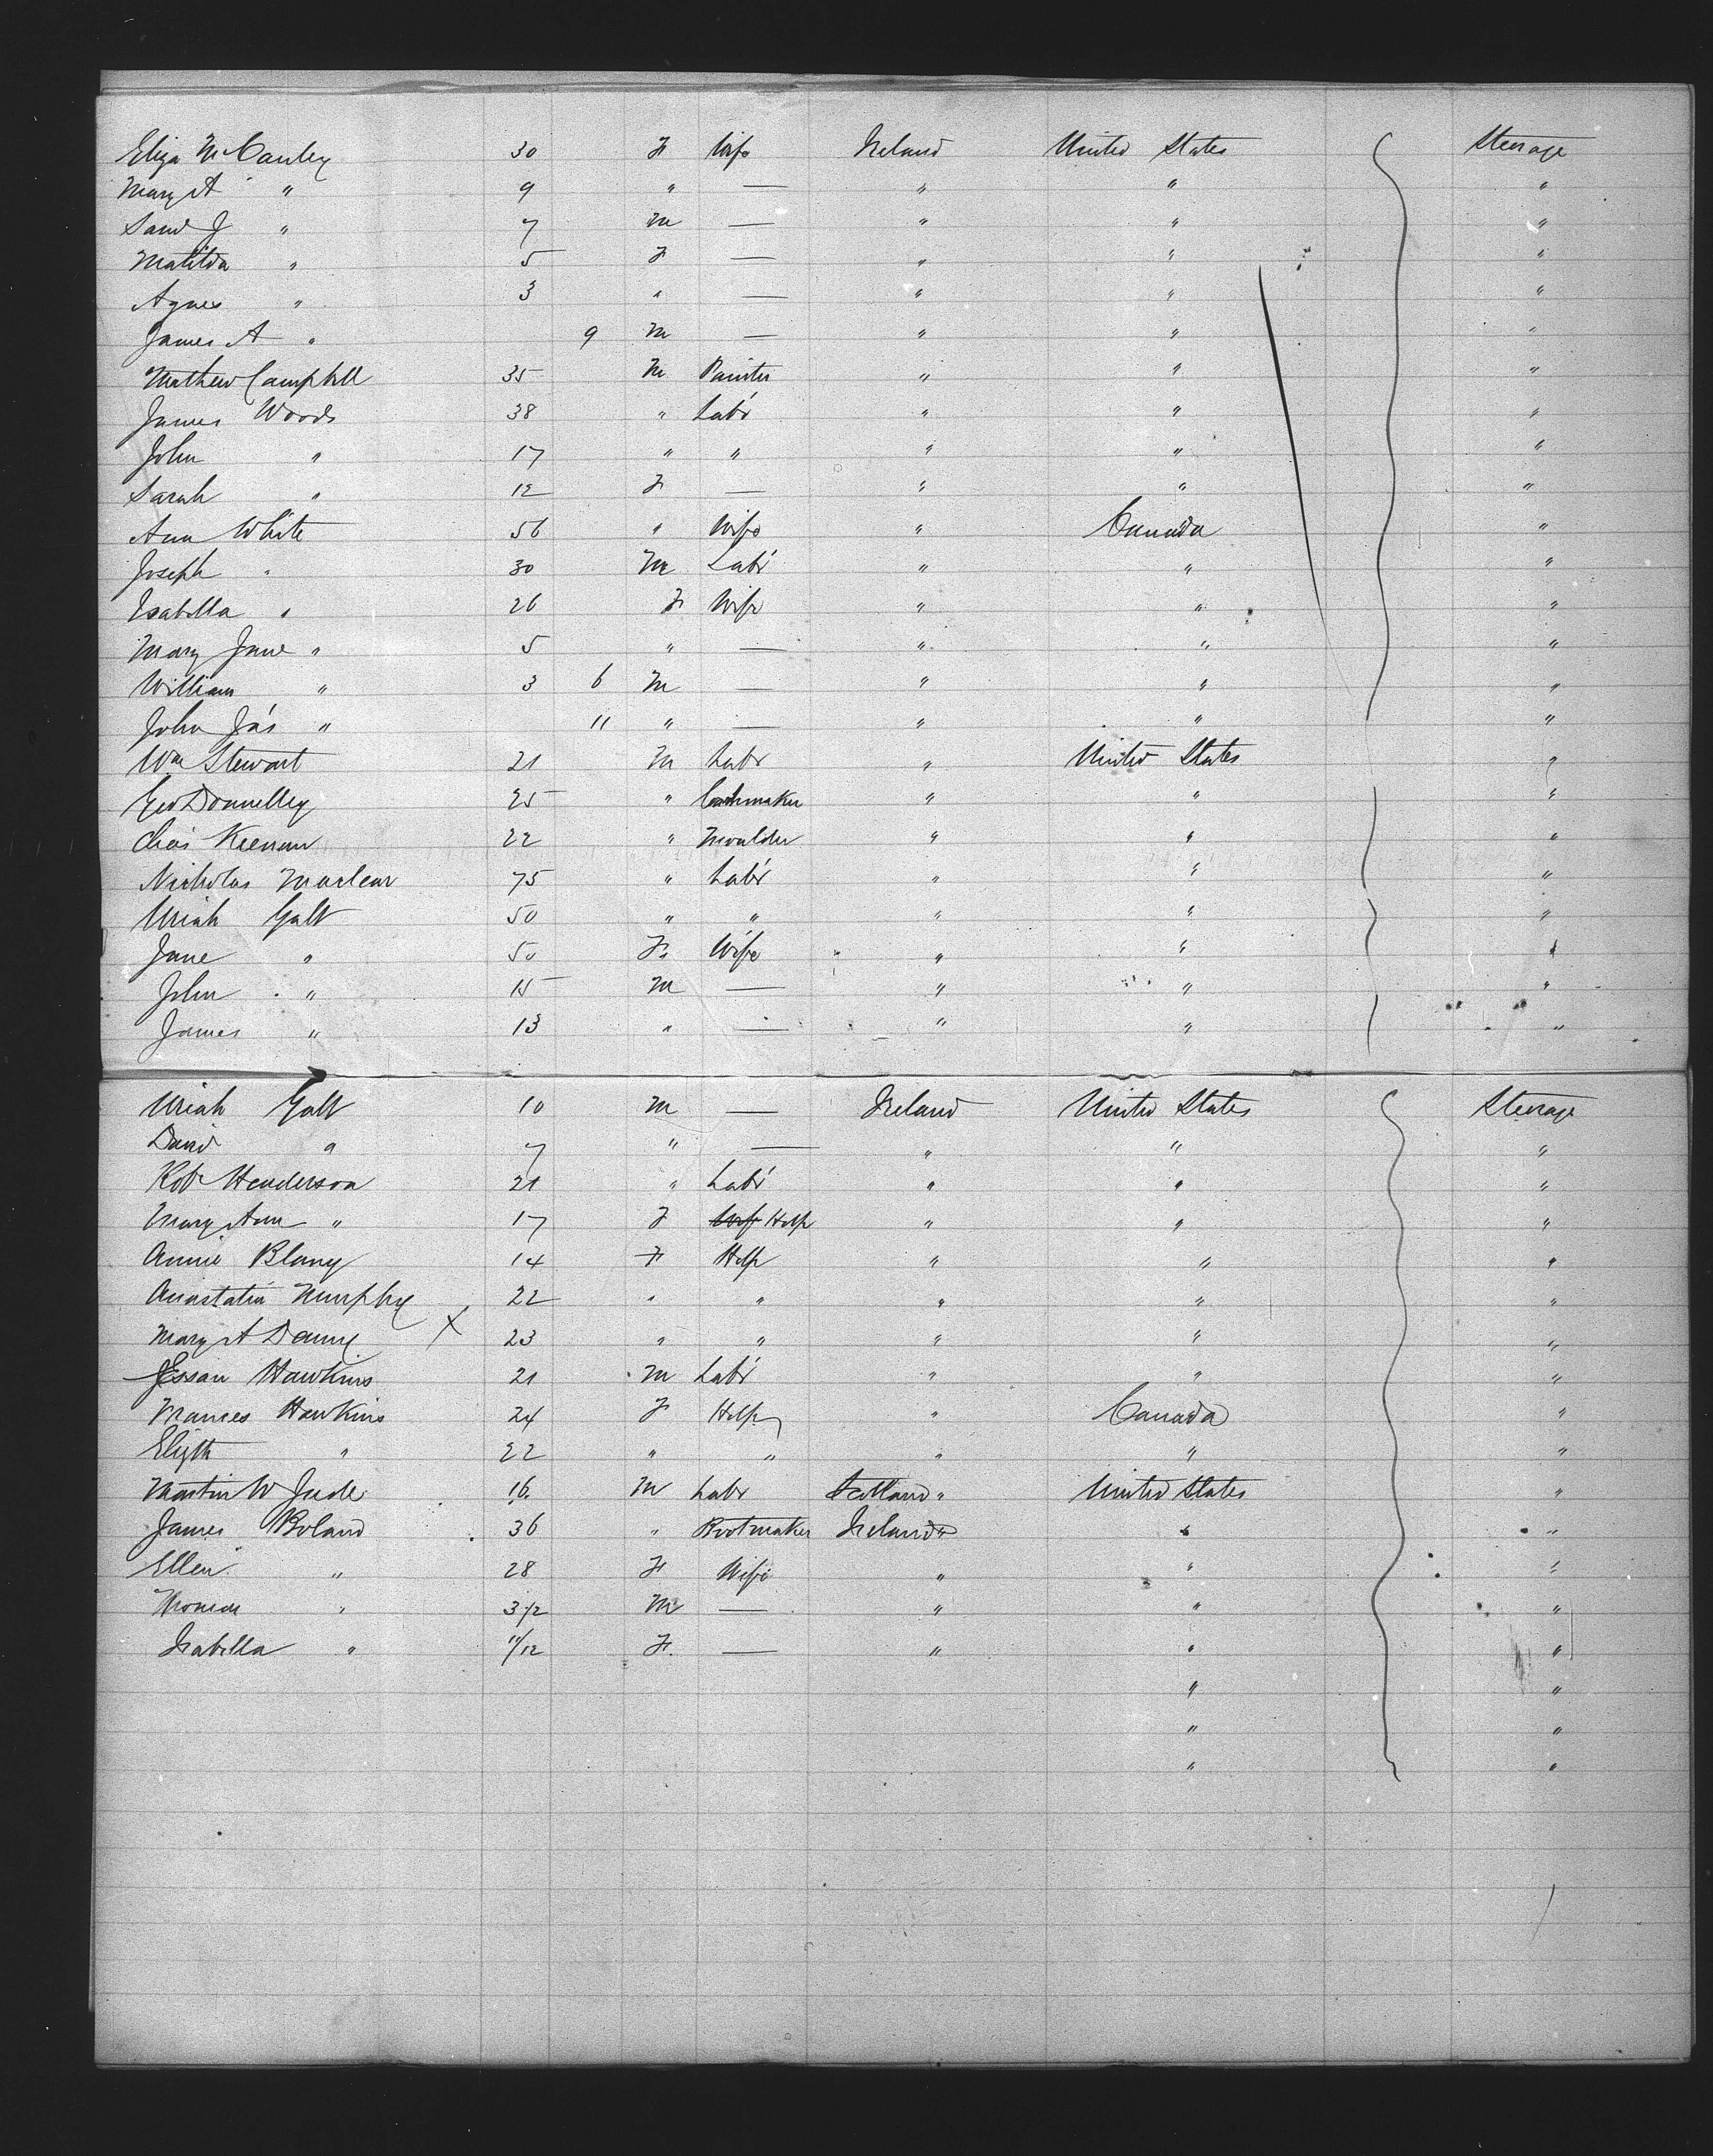 Eliza McCauley 30 F Wife Ireland United States Steerage
Mary A " 9 " — " " "
Saml J " 7 M — " " "
Matilda " 5 F — " " "
Agnes " 3 " — " " "
James A " 9 M — " " "
Mathew Campbell 35 M Painter " " "
James Woods 38 " Labr " " "
John " 17 " " " " "
Sarah " 12 F — " " "
Ann White 56 " Wife " Canada "
Joseph " 30 M Labr " " "
Isabella " 26 F Wife " " "
Mary Jane " 5 " — " " "
William " 3 6 M — " " "
John Jas " 11 " — " " "
Wm Stewart 21 M Labr " United States "
Geo Donnelley 25 " Coachmaker " " "
Chas Keenan 22 " Moulder " " "
Nicholas 75 " Labr " " "
Uriah Galt 50 " " " " "
Jane " 50 F Wife " " "
John " 15 M — " " "
James " 13 " — " " "
Uriah Galt 10 M — Ireland United States Steerage
David " 7 " — " " "
Robt Henderson 21 " Labr " " "
Mary Ann " 17 F Wife Help " " "
Annie Blany 14 F Help " " "
Anastatia Murphy 22 " " " " "
Mary A X 23 " " " " "
Hawkins 21 M Labr " " "
Frances Hawkins 24 F Help " Canada "
Elizth " 22 " " " " "
Martin W Jude 16 M Labr Scotland " United States "
James Boland 36 " Bootmaker Ireland " " "
Ellen " 28 F Wife " " "
Thomas " 3 1/2 M — " " "
Isabella " 11/12 F — " " "
" "
" "
" "